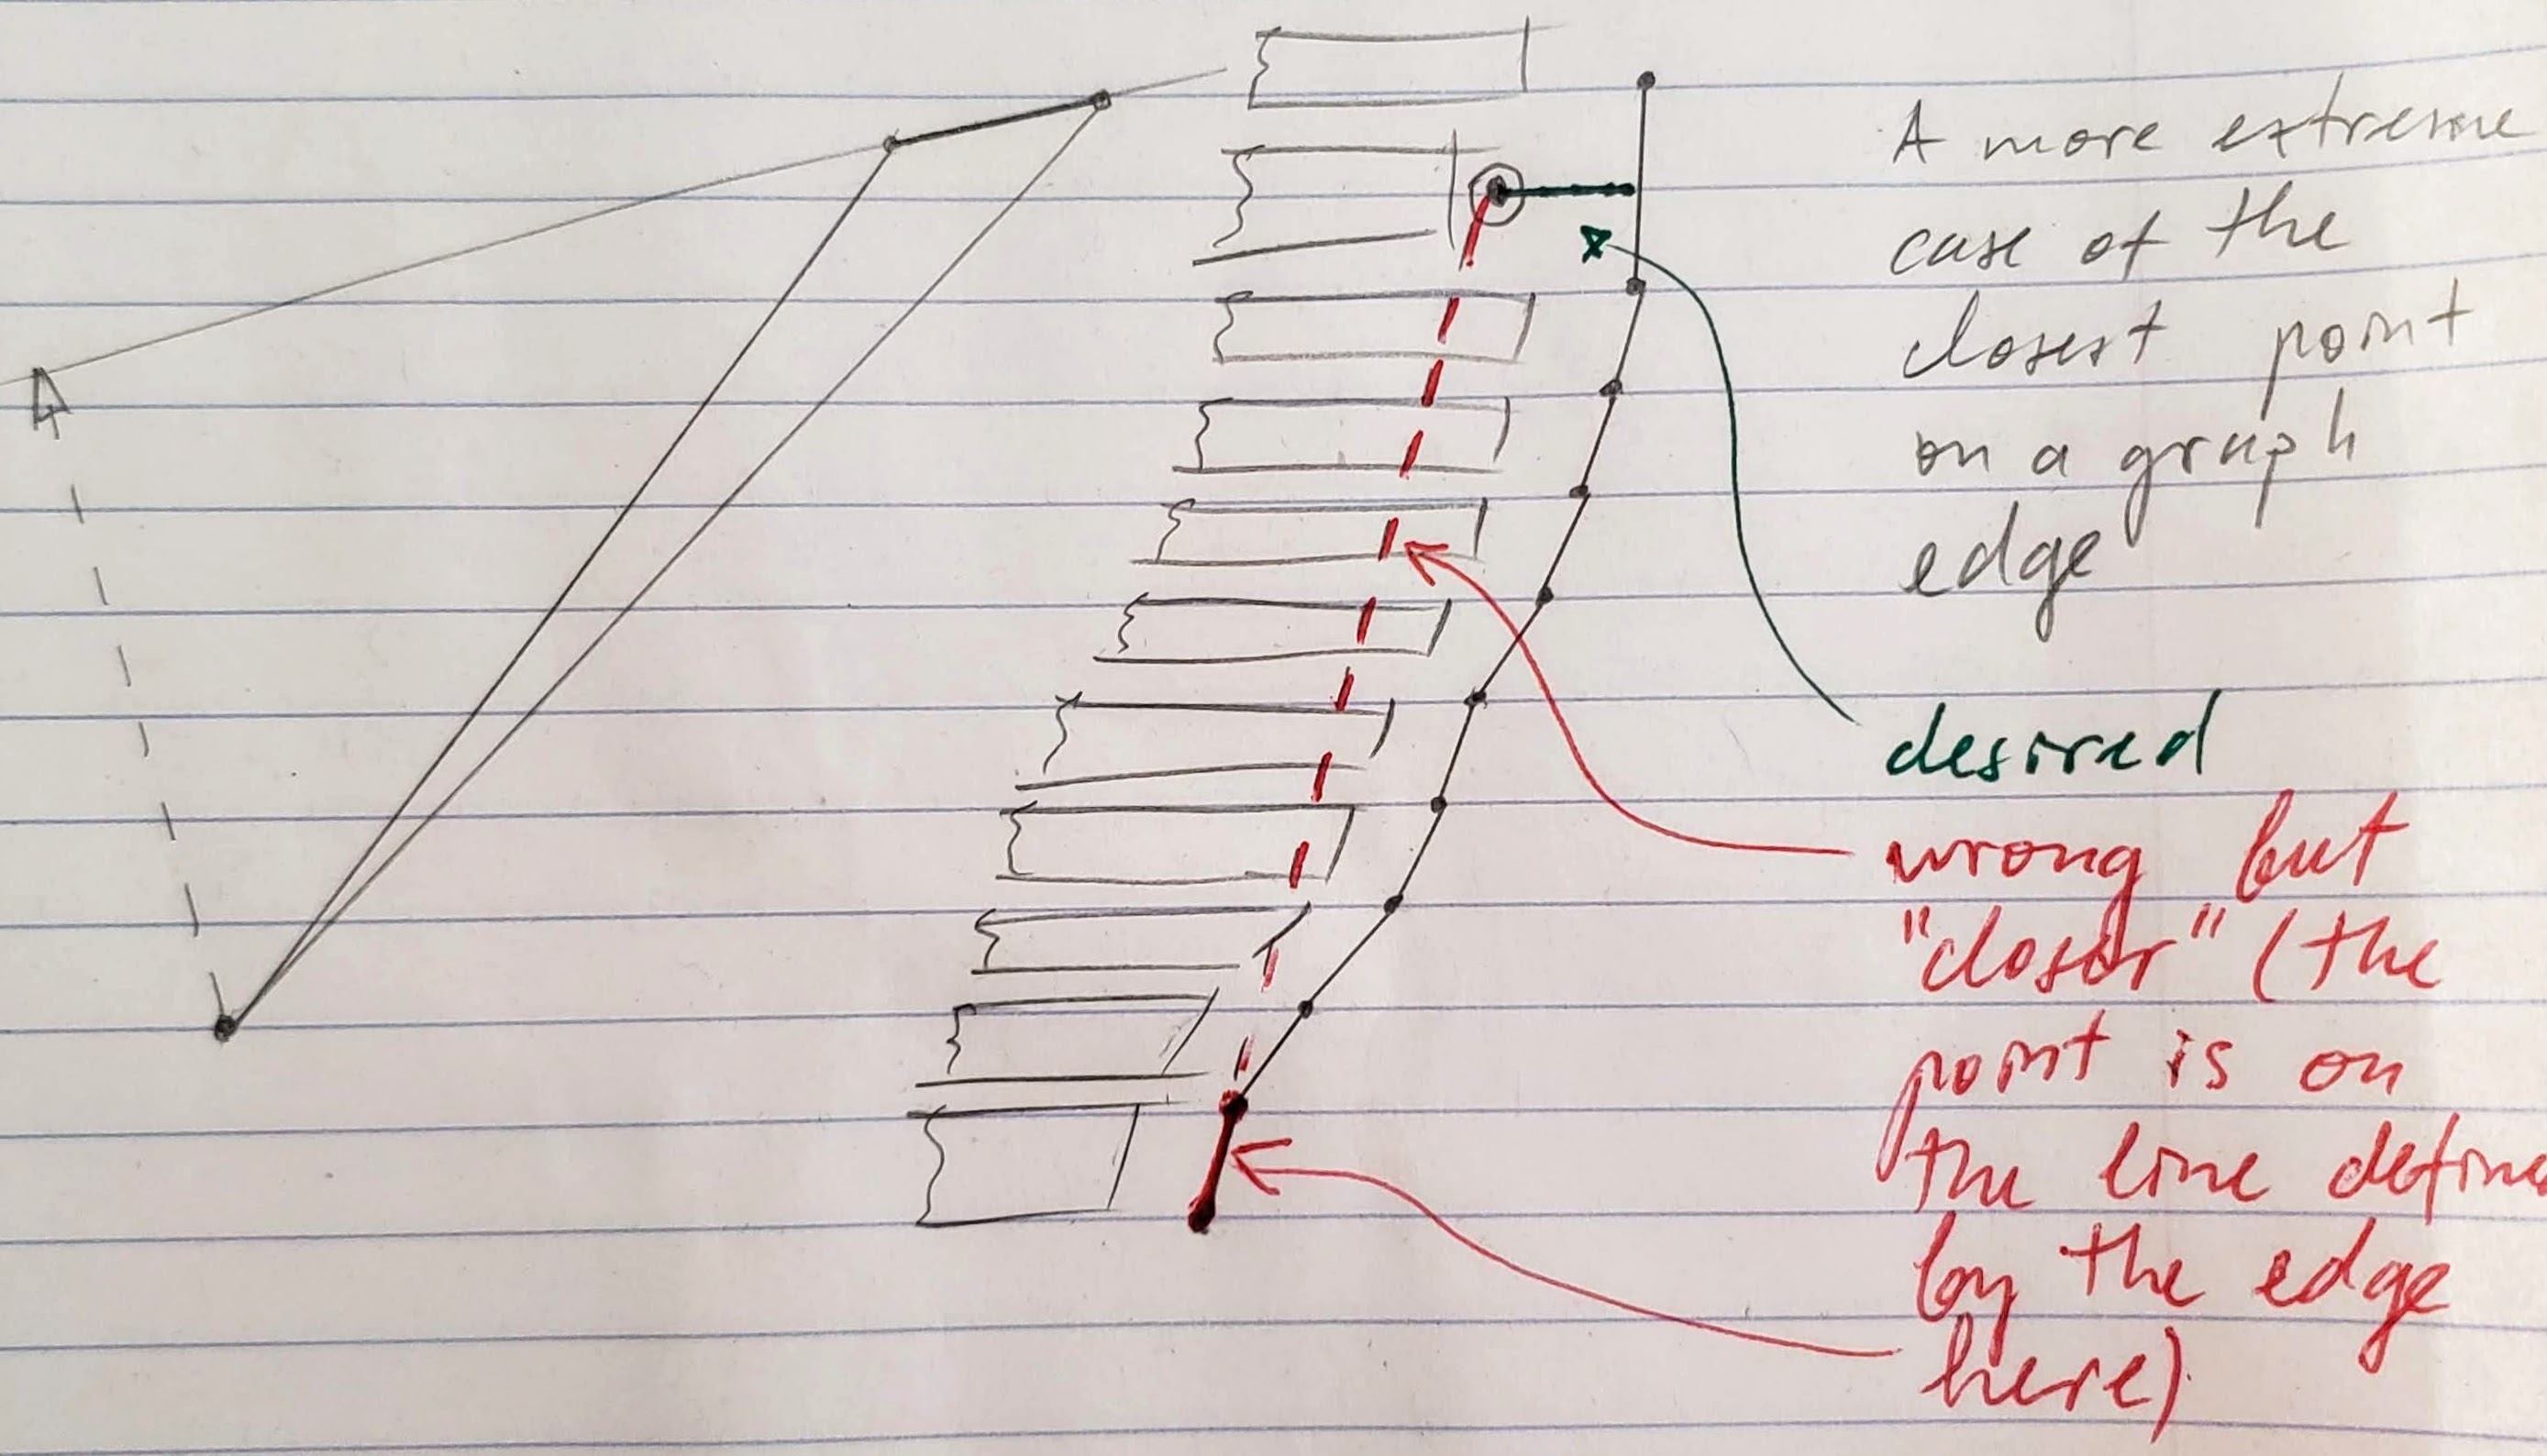 A more extreme
case of the
closest point
on a graph
edge
desired
wrong but
"closer" (the
point is on
the line define
by the edge
here)